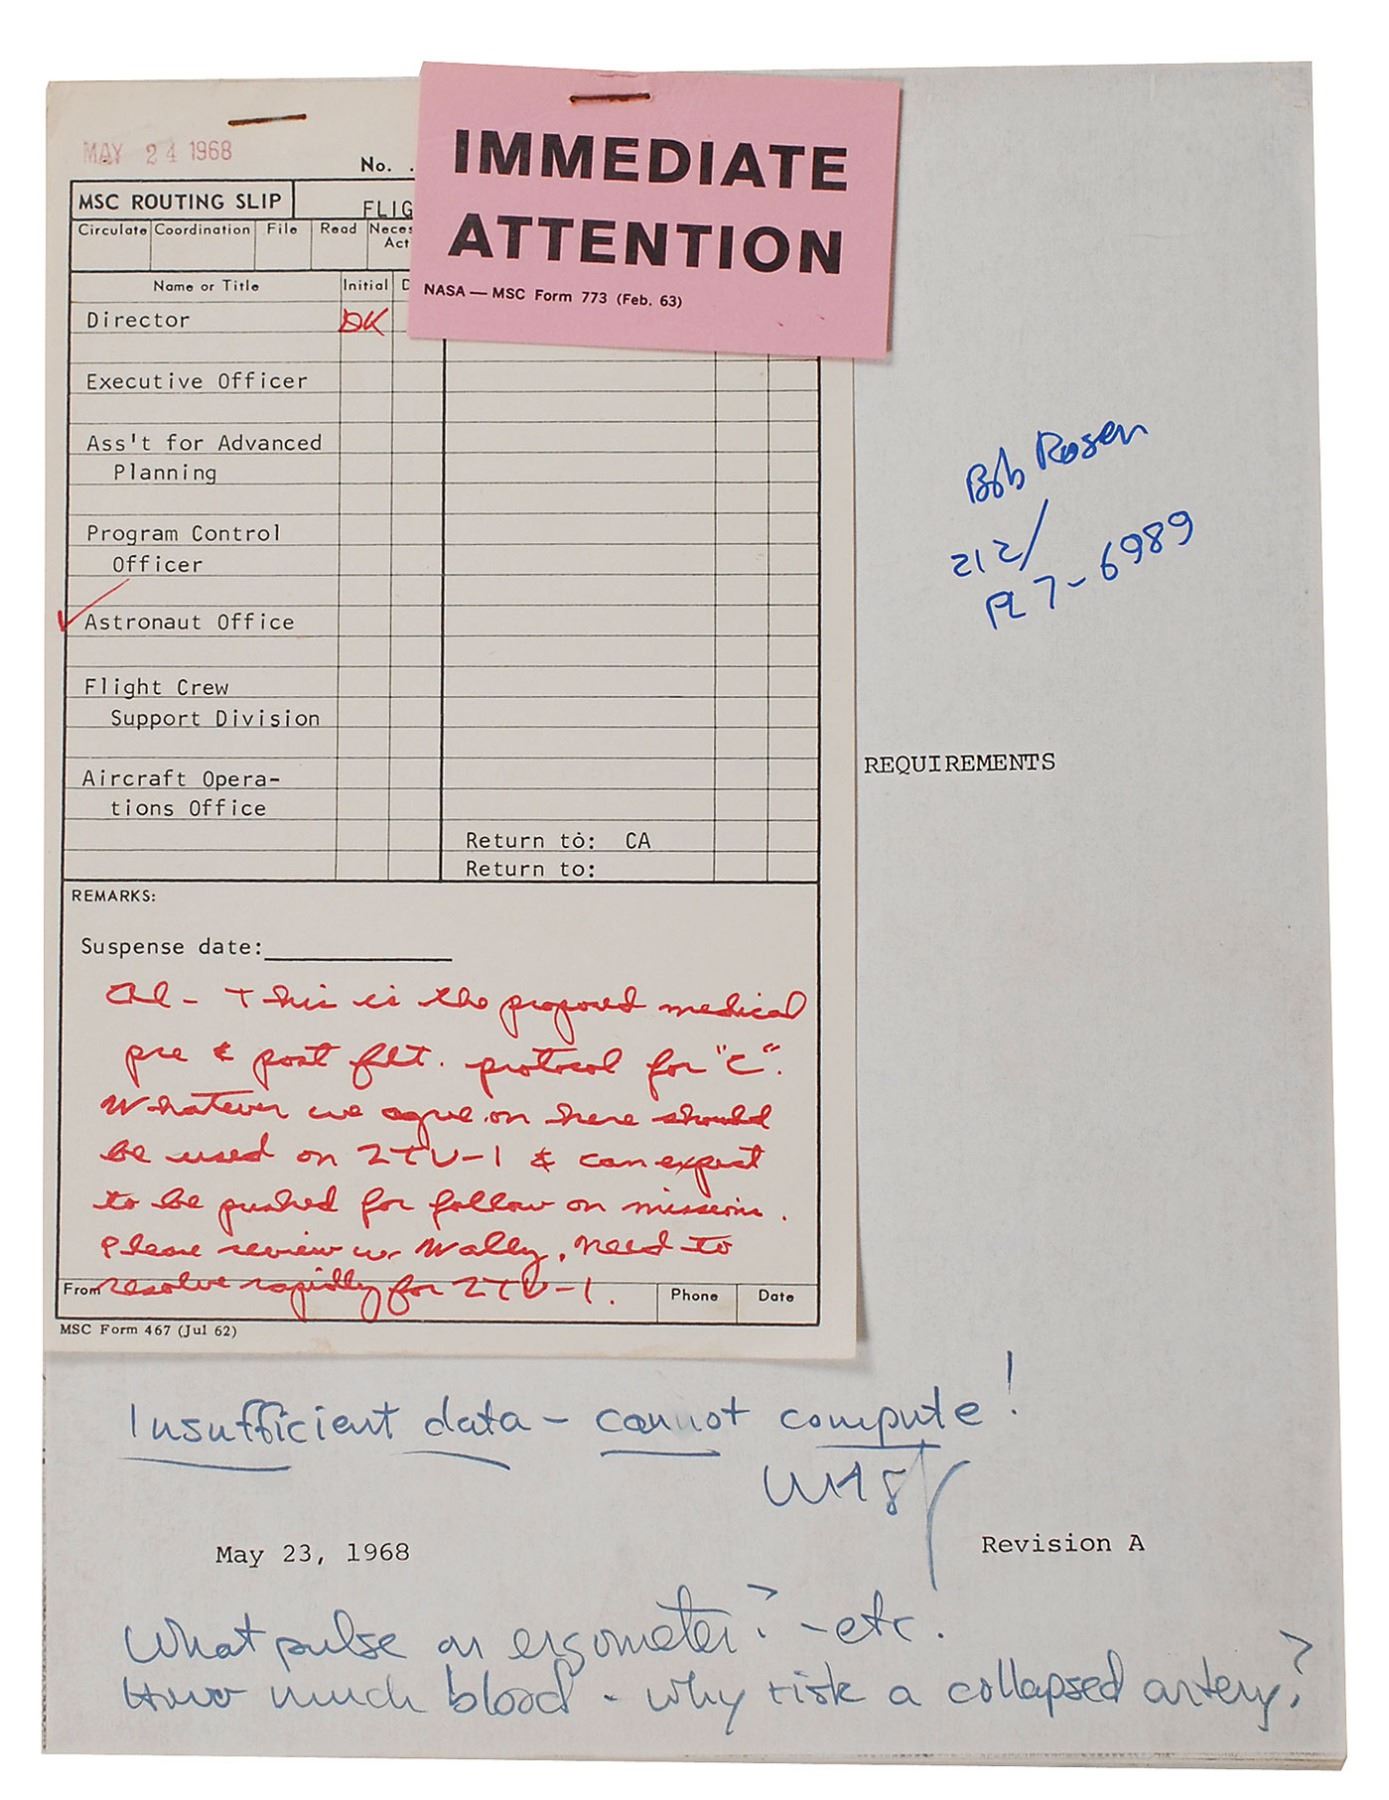 IMMEDIATE
ATTENTION
NASA — MSC Form 773 (Feb. 63)
MAY 24 1968
No. .
MSC ROUTING SLIP FLIG
Circulate Coordination File Read Neces
Act
Name or Title Initial D
Director DK
Executive Officer
Ass't for Advanced
Planning
Program Control
Officer
Astronaut Office
Flight Crew
Support Division
Aircraft Opera-
tions Office
Return to: CA
Return to:
REMARKS:
Suspense date:
Al - This is the proposed medical
pre & post flt. protocol for "C".
Whatever we agree on here should
be used on 2TV-1 & can expect
to be pushed for follow on missions.
Please review w. Wally. Need to
resolve rapidly for 2TV-1.
From Phone Date
MSC Form 467 (Jul 62)
Bob Rosen
212/
PL 7-6989
REQUIREMENTS
Insufficient data - cannot compute!
May 23, 1968
Revision A
What pulse on ergometer? - etc.
How much blood - why risk a collapsed artery?